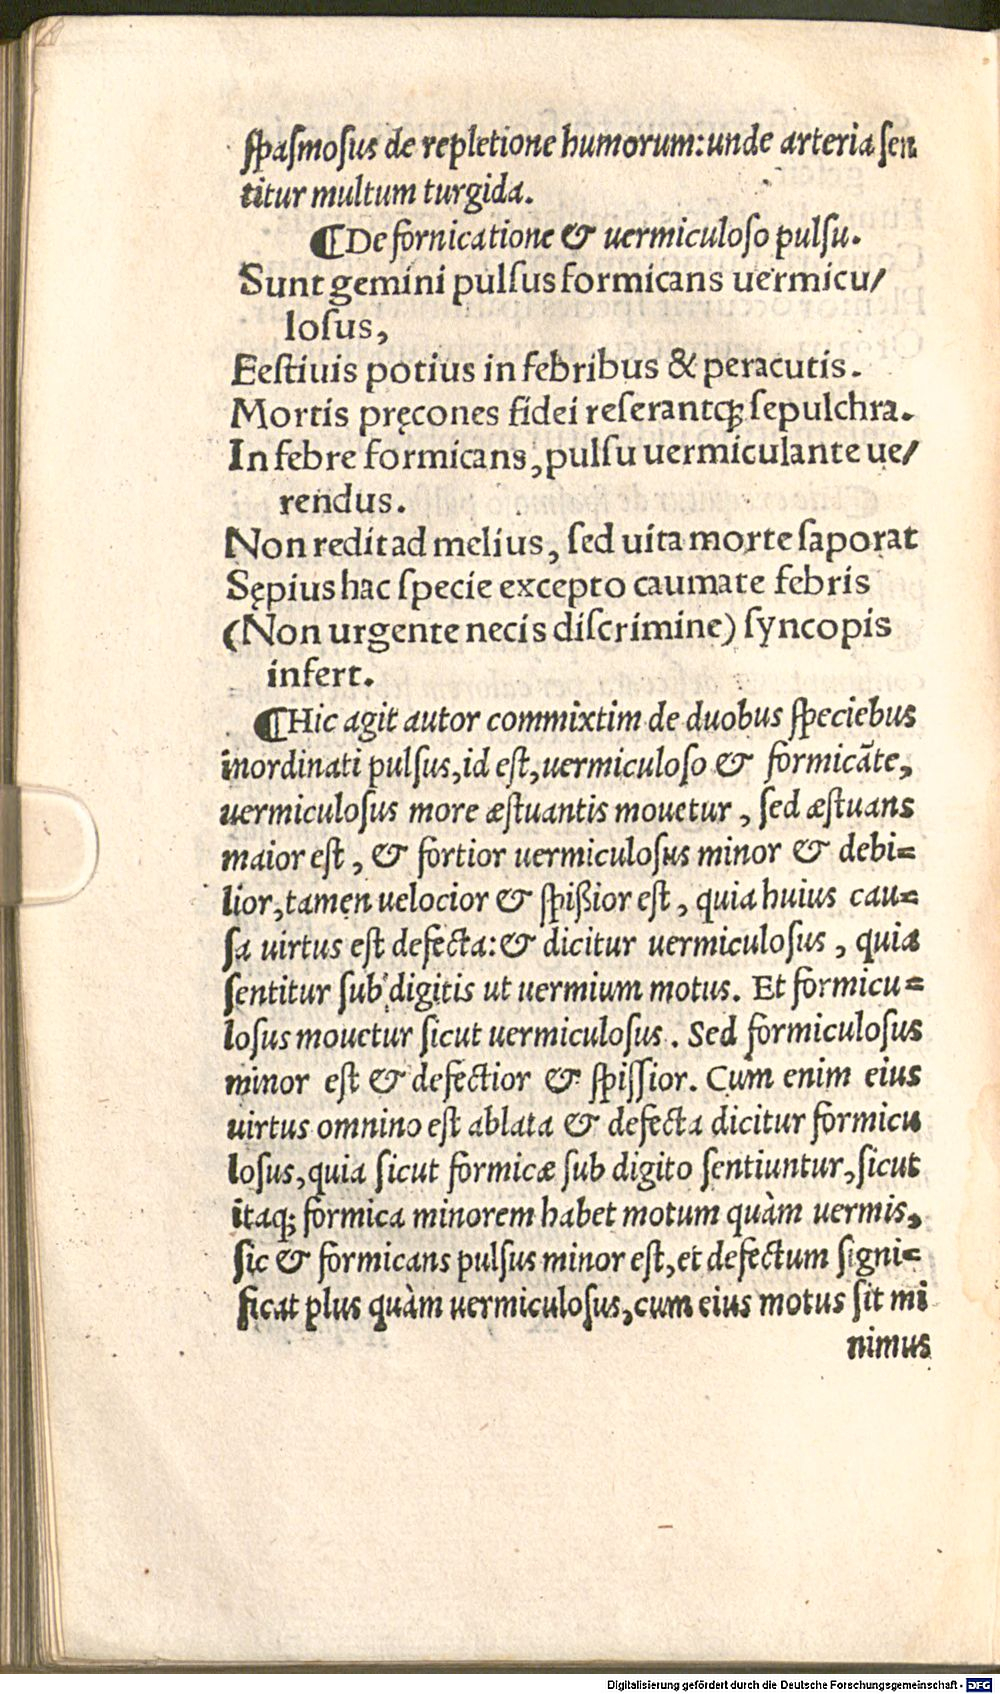 ſpaſmoſus de repletione humorum: unde arteria ſen
titur multum turgida.
¶De fornicatione & uermiculoſo pulſu.
Sunt gemini pulſus formicans uermicu/
loſus,
Eeſtiuis potius in febribus & peracutis.
Mortis pręcones fidei reſerantq; ſepulchra.
In febre formicans, pulſu uermiculante ue/
rendus.
Non redit ad melius, ſed uita morte ſaporat
Sępius hac ſpecie excepto caumate febris
(Non urgente necis diſcrimine) ſyncopis
infert.
¶Hic agit autor commixtim de duobus ſpeciebus
inordinati pulſus, id eſt, uermiculoſo & formicãte,
uermiculoſus more æſtuantis mouetur, ſed æſtuans
maior eſt, & fortior uermiculoſus minor & debi=
lior, tamen uelocior & ſpißior eſt, quia huius cau=
ſa uirtus eſt defecta: & dicitur uermiculoſus, quia
ſentitur ſub digitis ut uermium motus. Et formicu=
loſus mouetur ſicut uermiculoſus. Sed formiculoſus
minor eſt & defectior & ſpiſſior. Cum enim eius
uirtus omnino eſt ablata & defecta dicitur formicu
loſus, quia ſicut formicæ ſub digito ſentiuntur, ſicut
itaq; formica minorem habet motum quàm uermis,
ſic & formicans pulſus minor eſt, et defectum ſigni=
ficat plus quàm uermiculoſus, cum eius motus ſit mi
nimus
Digitalisierung gefördert durch die Deutsche Forschungsgemeinschaft - DFG